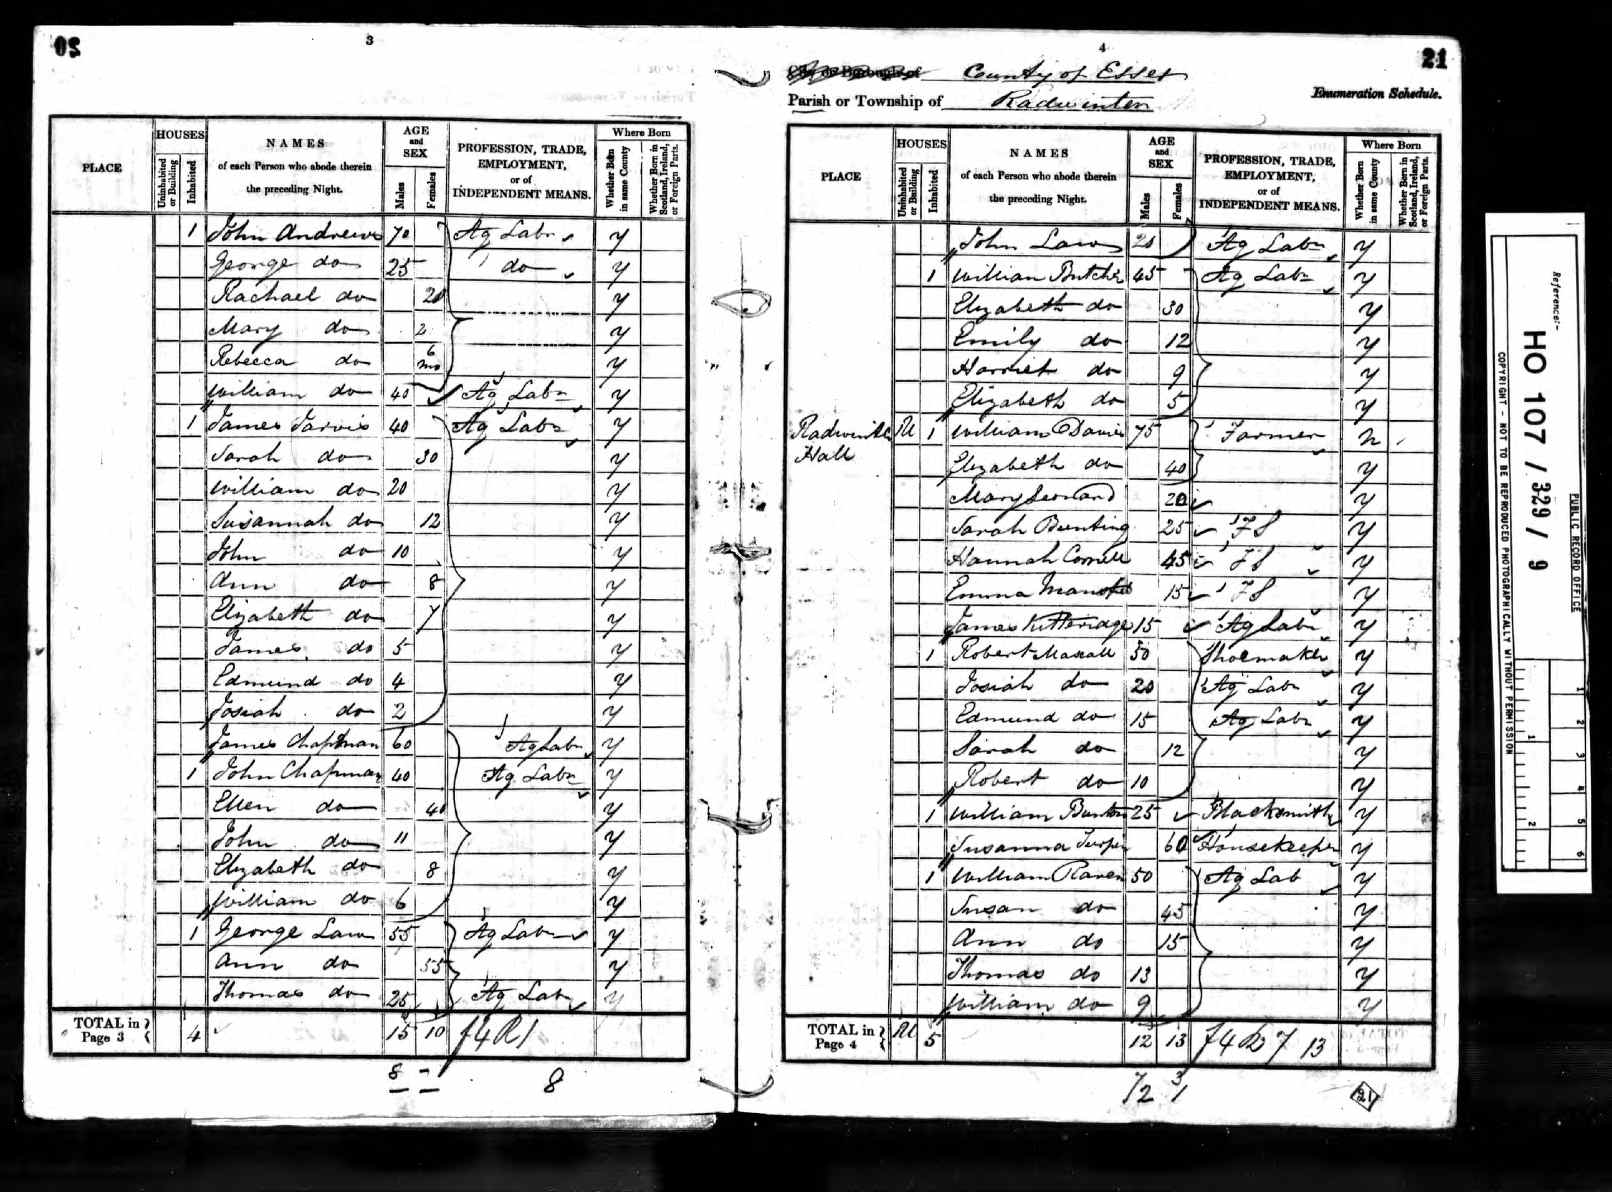 20
3
PLACE
HOUSES
Uninhabited or Building
Inhabited
NAMES
of each Person who abode therein
the preceding Night.
AGE and SEX
Males
Females
PROFESSION, TRADE,
EMPLOYMENT,
or of
INDEPENDENT MEANS.
Where Born
Whether Born in same County
Whether Born in Scotland, Ireland, or Foreign Parts.
1 John Andrews 70 Ag Labr y
George do 25 do y
Rachael do 20 y
Mary do 2 y
Rebecca do 6 mo y
William do 40 Ag Labr y
1 James Jarvis 40 Ag Labr y
Sarah do 30 y
William do 20 y
Susannah do 12 y
John do 10 y
Ann do 8 y
Elizabeth do 7 y
James do 5 y
Edmund do 4 y
Josiah do 2 y
James Chapman 60 Ag Labr y
1 John Chapman 40 Ag Labr y
Ellen do 40 y
John do 11 y
Elizabeth do 8 y
William do 6 y
1 George Law 55 Ag Labr y
Ann do 55 y
Thomas do 25 Ag Lab y
TOTAL in Page 3 4 15 10
8 7 8
4
21
County of Essex
Parish or Township of Radwinter
Enumeration Schedule.
PLACE
HOUSES
Uninhabited or Building
Inhabited
NAMES
of each Person who abode therein
the preceding Night.
AGE and SEX
Males
Females
PROFESSION, TRADE,
EMPLOYMENT,
or of
INDEPENDENT MEANS.
Where Born
Whether Born in same County
Whether Born in Scotland, Ireland, or Foreign Parts.
John Law 20 Ag Labr y
1 William Butcher 45 Ag Labr y
Elizabeth do 30 y
Emily do 12 y
Harriet do 9 y
Elizabeth do 5 y
Radwinter Hall 1 William Davies 75 Farmer n
Elizabeth do 40 y
Mary Leonard 20 y
Sarah Bunting 25 F S y
Hannah Cornell 45 F S y
Emma 15 F S y
James Kitteridge 15 Ag Labr y
1 Robert 50 Shoemaker y
Josiah do 20 Ag Labr y
Edmund do 15 Ag Labr y
Sarah do 12 y
Robert do 10 y
1 William 25 Blacksmith y
Susanna Turpin 60 Housekeeper y
1 William Raven 50 Ag Lab y
Susan do 45 y
Ann do 15 y
Thomas do 13 y
William do 9 y
TOTAL in Page 4 5 12 13 13
21
Reference:-
HO 107 / 329 / 9
PUBLIC RECORD OFFICE
COPYRIGHT - NOT TO BE REPRODUCED PHOTOGRAPHICALLY WITHOUT PERMISSION
1
2
3
4
5
6
1
2